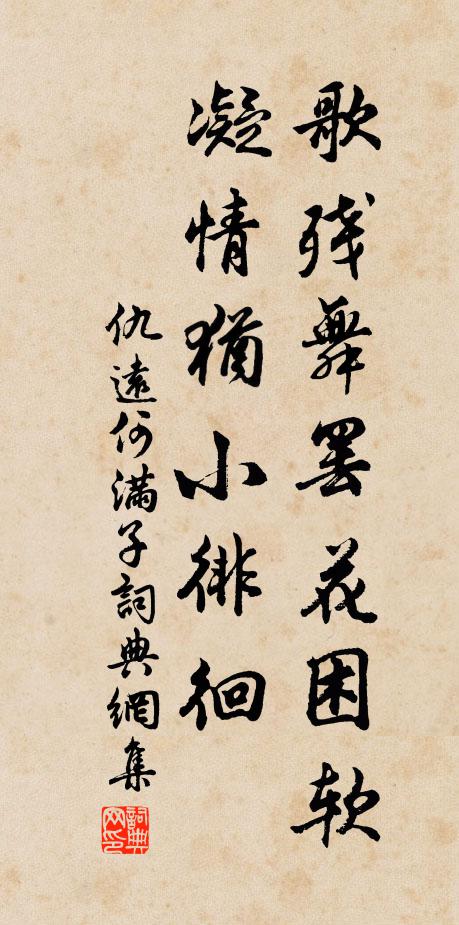 歌残舞罢花困软
凝情犹小徘徊
仇遠何满子詞典網集
詞典网印